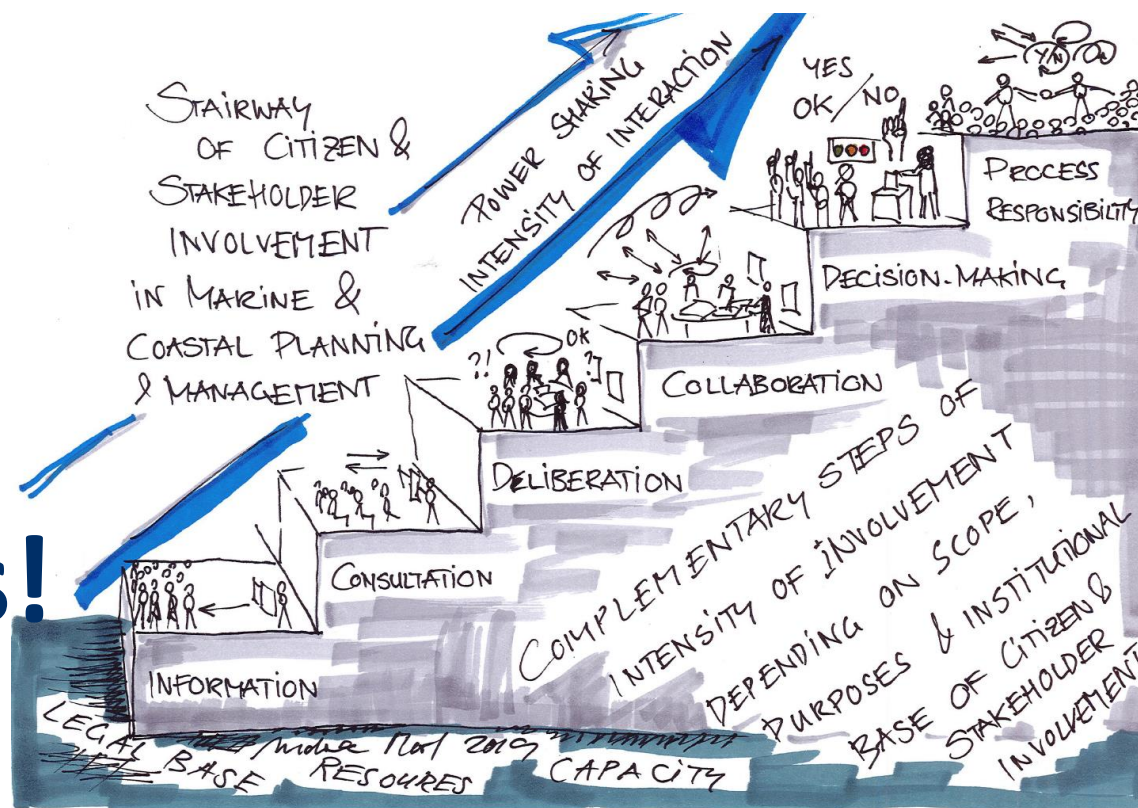 STAIRWAY
OF CITIZEN &
STAKEHOLDER
INVOLVEMENT
IN MARINE &
COASTAL PLANNING
& MANAGEMENT
POWER SHARING
INTENSITY OF INTERACTION
YES
OK/NO
Y/N
PROCESS
RESPONSIBILITY
DECISION-MAKING
COLLABORATION
?! OK ?
DELIBERATION
CONSULTATION
INFORMATION
s!
COMPLEMENTARY STEPS OF
INTENSITY OF INVOLVEMENT
DEPENDING ON SCOPE,
PURPOSES & INSTITUTIONAL
BASE OF CITIZEN &
STAKEHOLDER
INVOLVEMENT
2019
LEGAL
BASE
RESOURES
CAPACITY